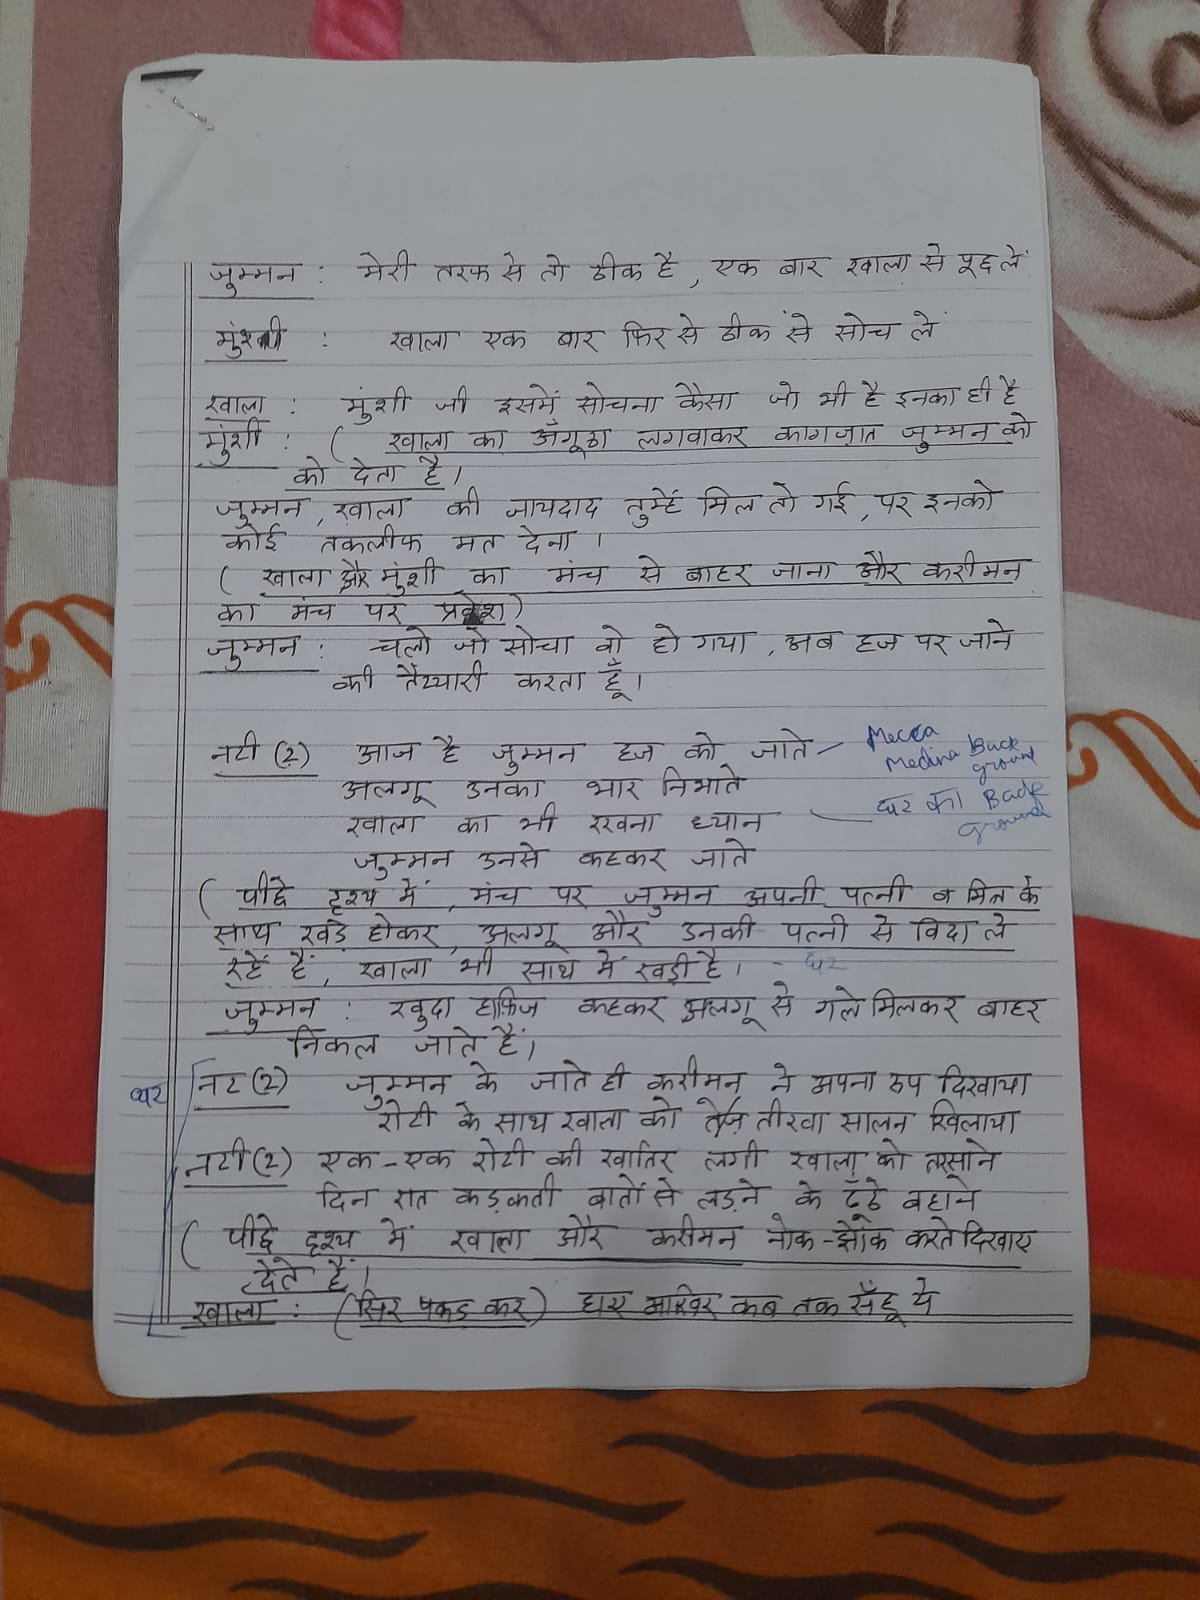 जुम्मन : मेरी तरफ से तो ठीक है, एक बार खाला से पूछ लें
मुंशी : खाला एक बार फिर से ठीक से सोच लें
खाला : मुंशी जी इसमें सोचना कैसा जो भी है इनका ही है
मुंशी : ( खाला का अँगूठा लगवाकर कागज़ात जुम्मन को
को देता है।
जुम्मन, खाला की जायदाद तुम्हें मिल तो गई, पर इनको
कोई तकलीफ मत देना।
( खाला और मुंशी का मंच से बाहर जाना और करीमन
का मंच पर प्रवेश)
जुम्मन : चलो जो सोचा वो हो गया, अब हज पर जाने
की तैय्यारी करता हूँ।
नटी (2) आज है जुम्मन हज को जाते – Mecca
Medina Back
ground
अलगू उनका भार निभाते
खाला का भी रखना ध्यान — घर का Back
ground
जुम्मन उनसे कहकर जाते
( पीछे दृश्य में, मंच पर जुम्मन अपनी पत्नी व मित्र के
साथ खड़े होकर, अलगू और उनकी पत्नी से विदा ले
रहें हैं, खाला भी साथ में खड़ी है। - घर
जुम्मन : खुदा हाफ़िज कहकर अलगू से गले मिलकर बाहर
निकल जाते हैं।
घर नट (2) जुम्मन के जाते ही करीमन ने अपना रुप दिखाया
रोटी के साथ खाला को तेज़ तीखा सालन खिलाया
नटी (2) एक-एक रोटी की खातिर लगी खाला को तरसाने
दिन रात कड़कती बातों से लड़ने के ढूँढे बहाने
( पीछे दृश्य में खाला और करीमन नोक-झोंक करते दिखाए
देते हैं।
खाला : (सिर पकड़ कर) हाए आखिर कब तक सँहू ये